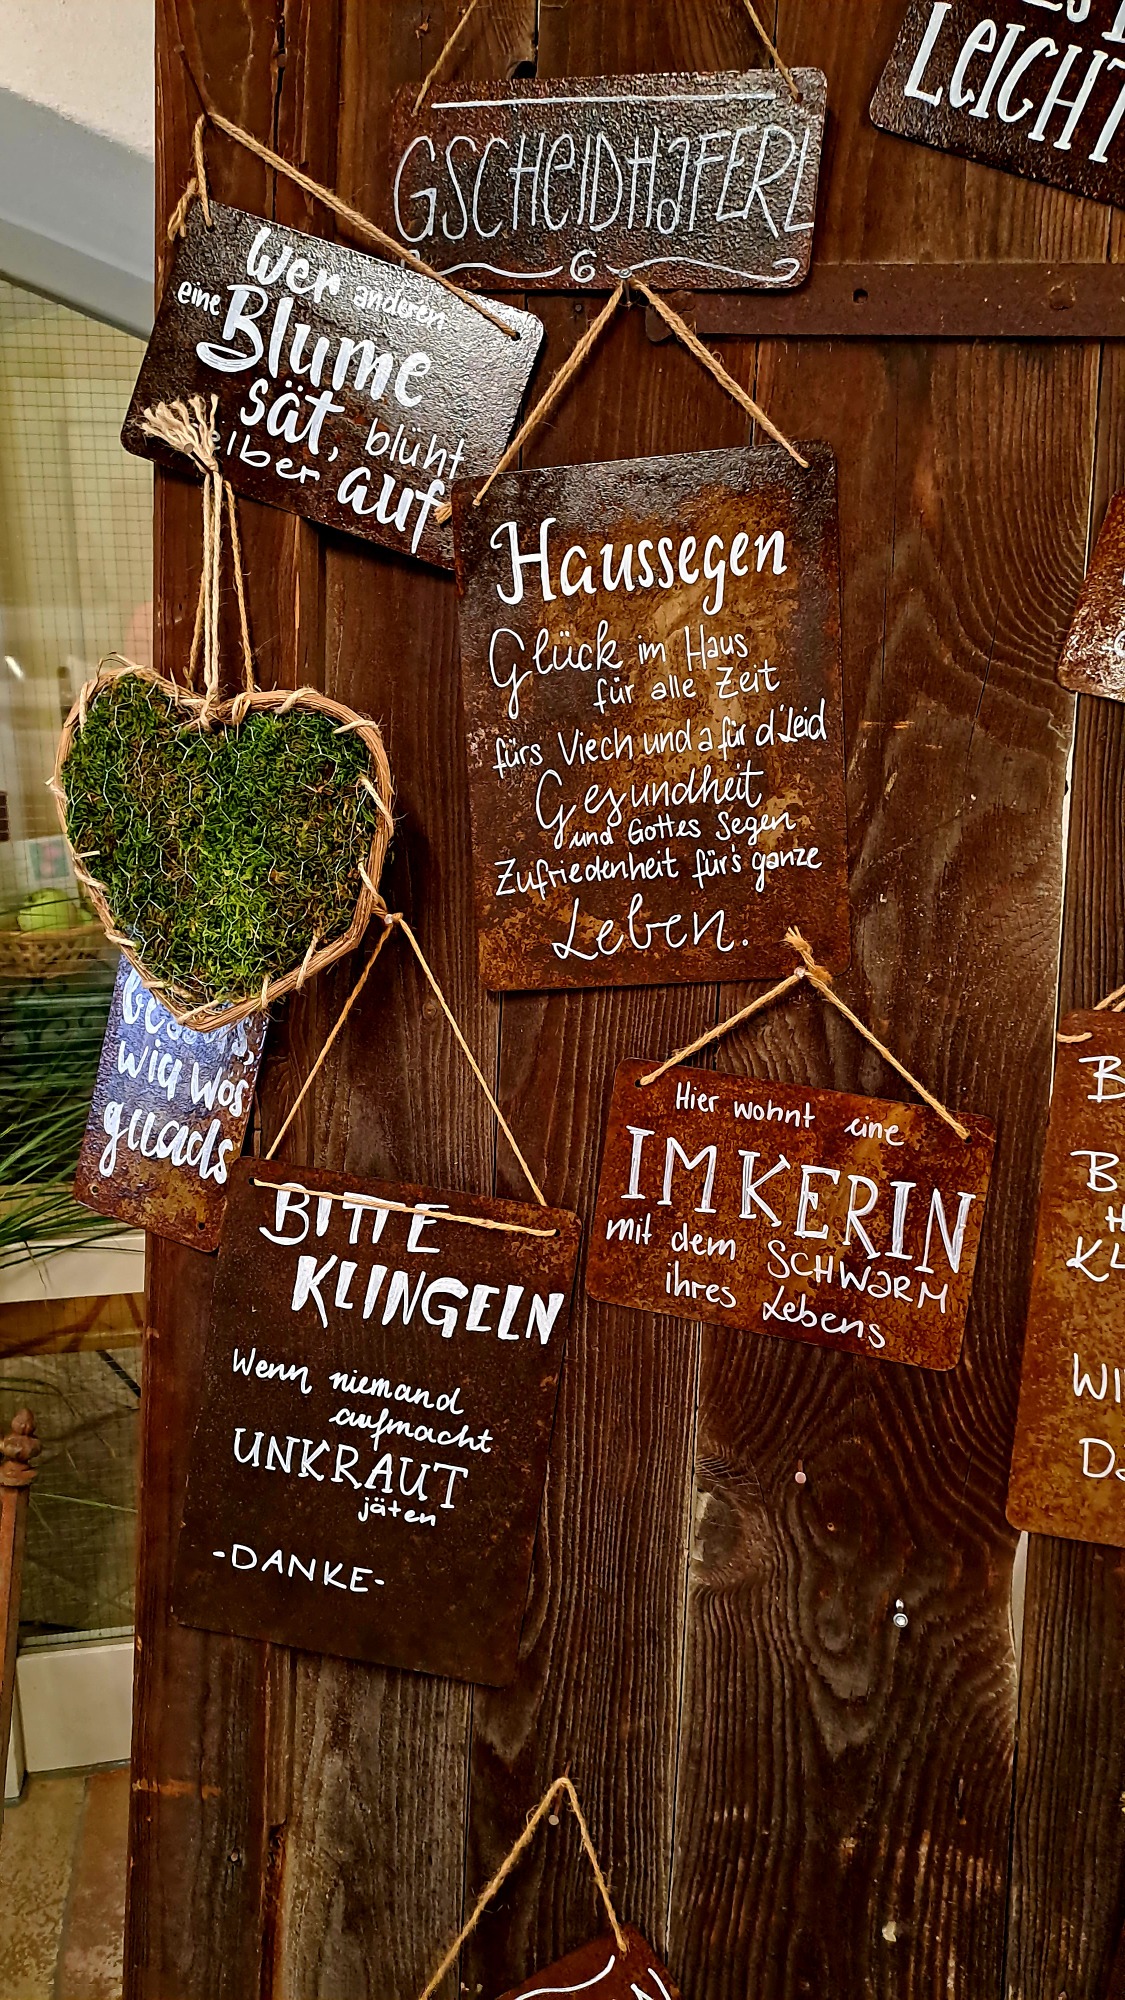 LEICHT
GSCHEIDHAFERL
G
Wer anderen
eine Blume
sät, blüht
selber auf
Haussegen
Glück im Haus
für alle Zeit
fürs Viech und a für d'Leid
Gesundheit
und Gottes Segen
Zufriedenheit für's ganze
Leben.
wia wos
guads
BITTE
KLINGELN
Wenn niemand
aufmacht
UNKRAUT
jäten
-DANKE-
Hier wohnt eine
IMKERIN
mit dem SCHWARM
ihres Lebens